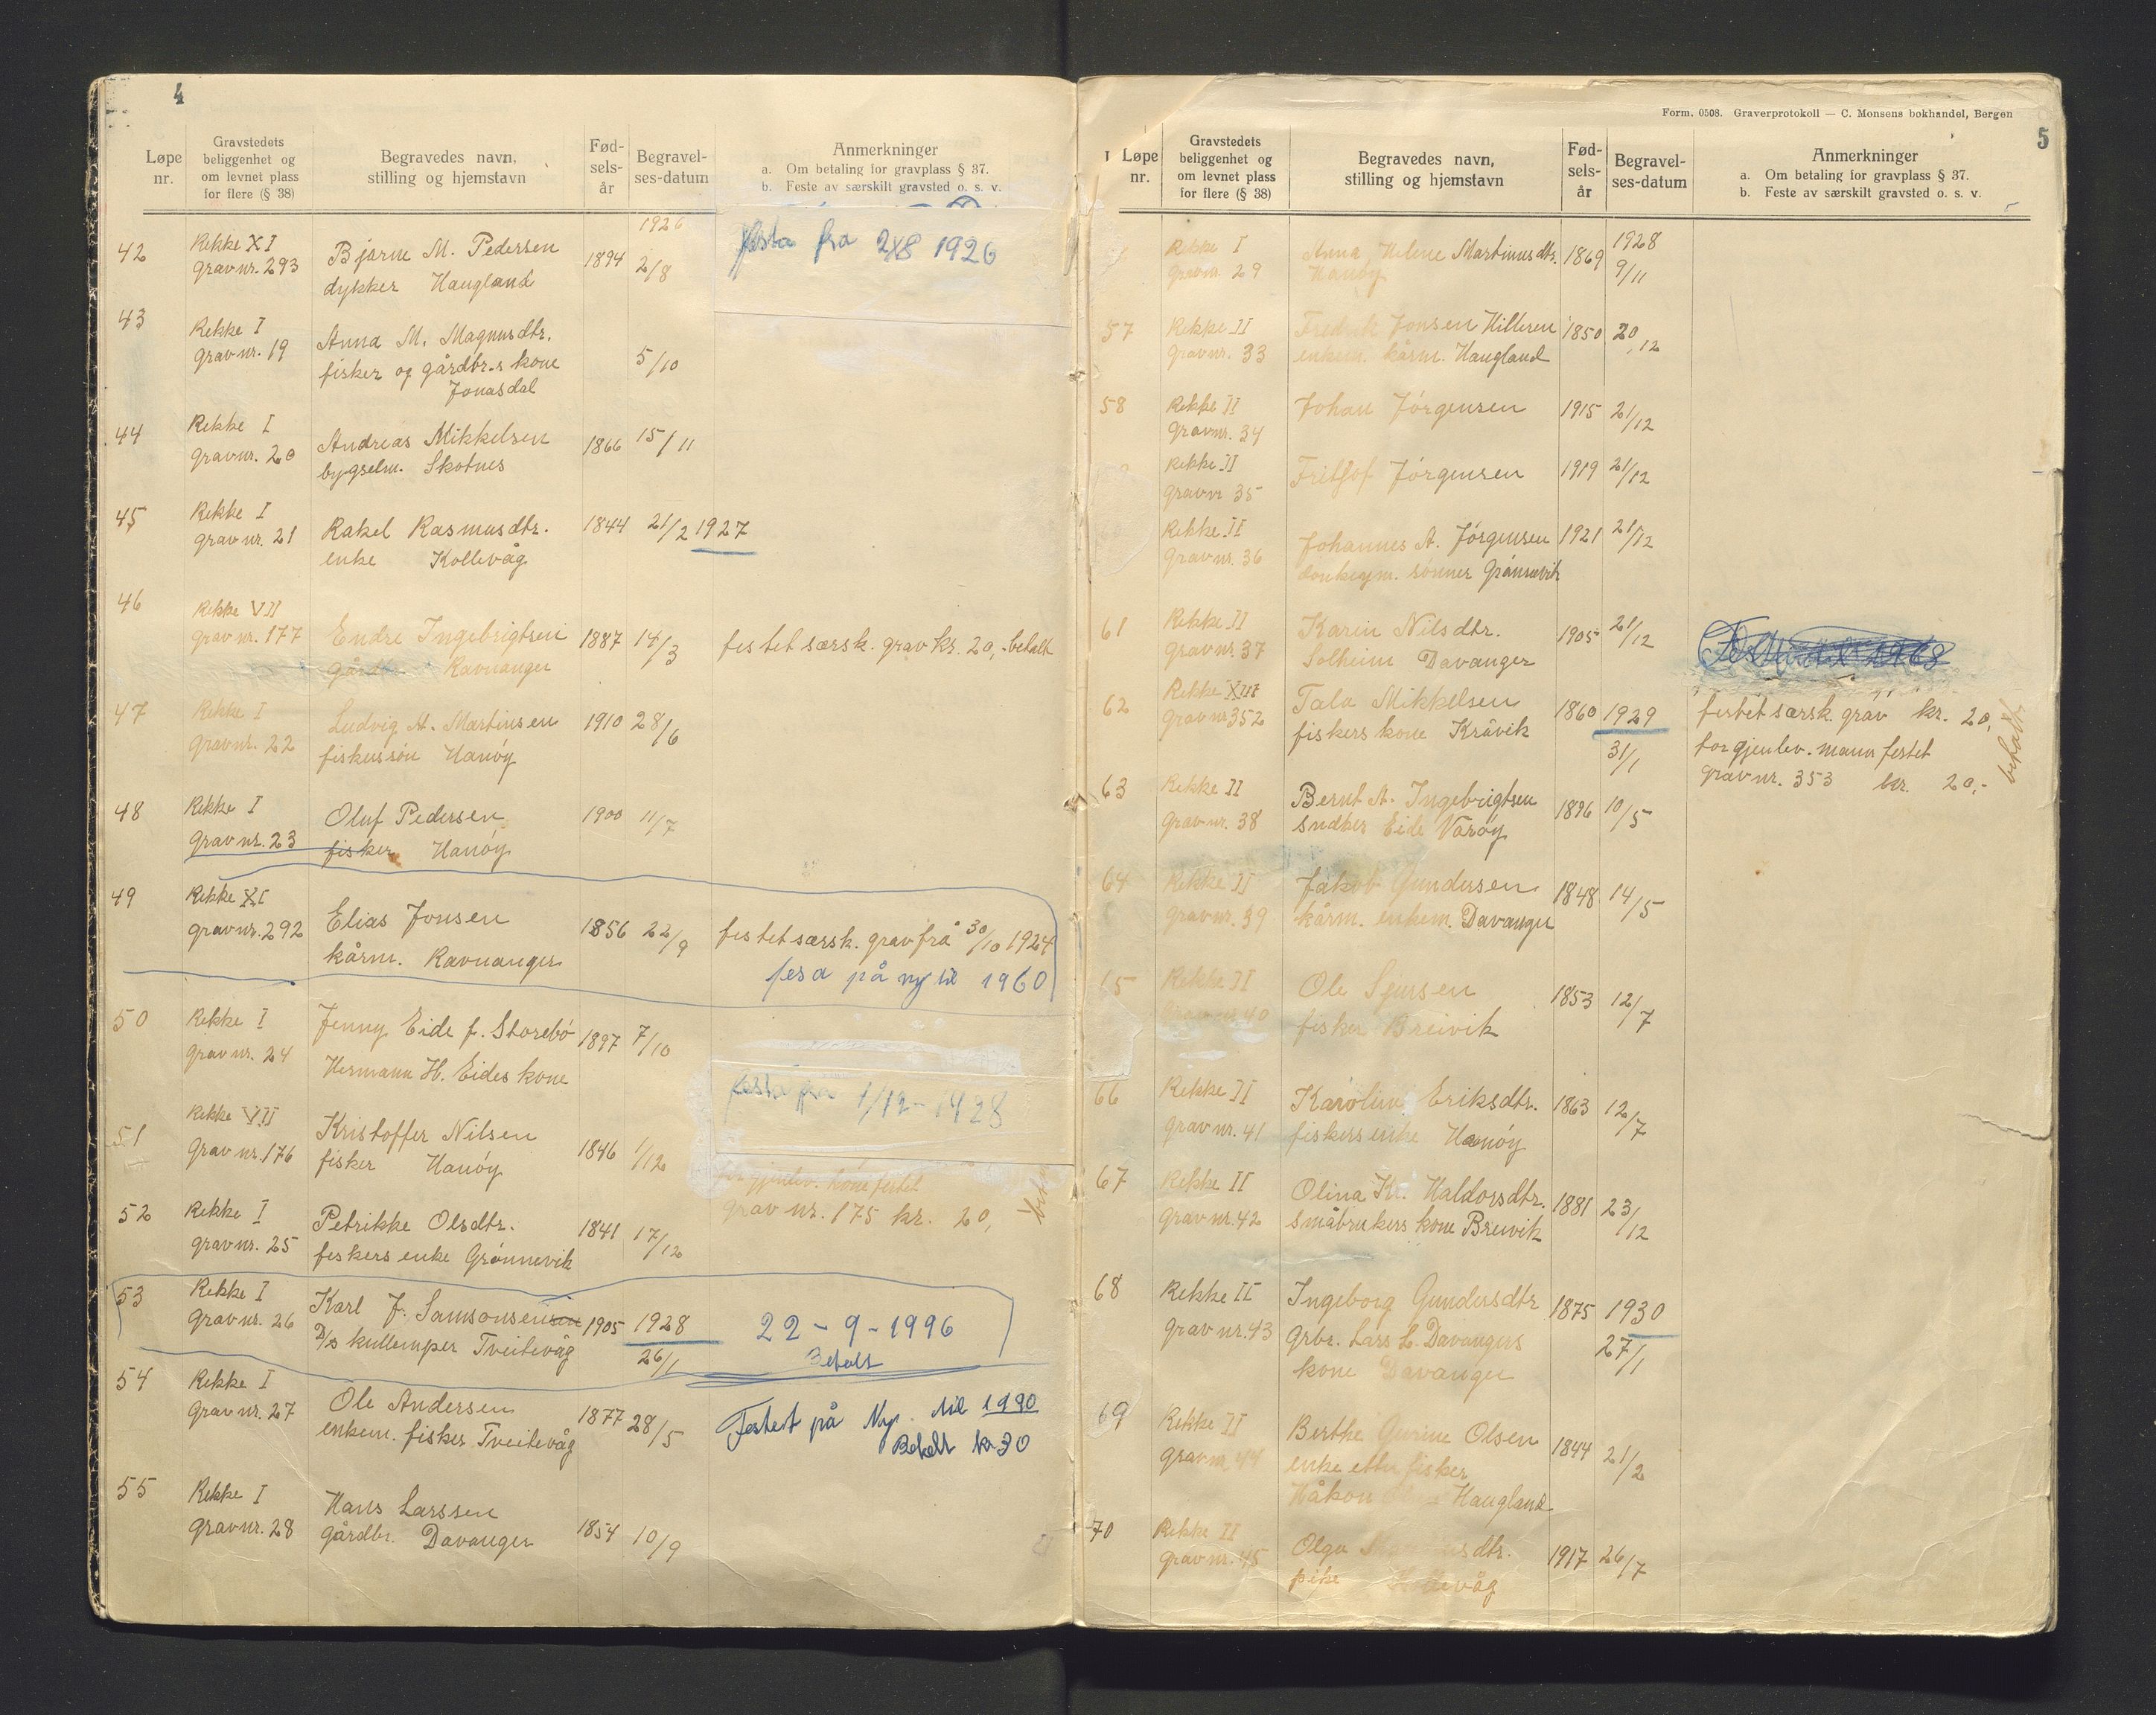 4
Løpe nr.
Gravstedets beliggenhet og om levnet plass for flere (§ 38)
Begravedes navn, stilling og hjemstavn
Fød-sels-år
Begravel-ses-datum
Anmerkninger
a. Om betaling for gravplass § 37.
b. Feste av særskilt gravsted o. s. v.
1926
42 Rekke XI Bjarne M. Pedersen 1894 2/8 festa fra 2/8 1926
gravnr. 293 dykker Haugland
43 Rekke I Anna M. Magnusdtr. 5/10
gravnr. 19 fisker og gårdbr.s kone
Jonasdal
44 Rekke I Andreas Mikkelsen 1866 15/11
gravnr. 20 bygselm. Skotnes
45 Rekke I Rakel Rasmusdtr. 1844 21/2 1927
gravnr. 21 enke Kollevåg
46 Rekke VII Endre Ingebrigtsen 1887 14/3 festet særsk. grav kr. 20,- betalt
gravnr. 177 Ravnanger
47 Rekke I Ludvig A. Martinsen 1910 28/6
gravnr. 22 fiskerssøn Hanøy
48 Rekke I Oluf Pedersen 1900 11/7
gravnr. 23 fisker Hanøy
49 Rekke XI Elias Jonsen 1856 22/9 festet særsk. grav frå 30/10 1924
gravnr. 292 kårm. Ravnanger fesa på ny til 1960
50 Rekke I Jenny Eide f. Storebø 1897 7/10
gravnr. 24 Hermann H. Eides kone
51 Rekke VII Kristoffer Nilsen 1846 1/12 festa fra 1/12-1928
gravnr. 176 fisker Hanøy
for gjenlev. kone festet
gravnr. 175 kr. 20,
52 Rekke I Petrikke Olsdtr. 1841 17/12
gravnr. 25 fiskers enke Grønnevik
53 Rekke I Karl J. Samsonsen 1905 1928 22-9-1996
gravnr. 26 D/s kullemper Tveitevåg 26/1 Betalt
54 Rekke I Ole Andersen 1877 28/5 Festet på Ny. til 1990
gravnr. 27 enkem. fisker Tveitevåg Betalt kr 30
55 Rekke I Hans Larssen 1854 10/9
gravnr. 28 gårdbr. Davanger
Form. 0508. Graverprotokoll — C. Monsens bokhandel, Bergen
5
Løpe nr.
Gravstedets beliggenhet og om levnet plass for flere (§ 38)
Begravedes navn, stilling og hjemstavn
Fød-sels-år
Begravel-ses-datum
Anmerkninger
a. Om betaling for gravplass § 37.
b. Feste av særskilt gravsted o. s. v.
Rekke I Anna Helene Martinusdtr. 1869 1928
gravnr. 29 Hanøy 9/11
57 Rekke II Fredrik Jonsen Hilleren 1850 20/12
gravnr. 33 enkem. kårm. Haugland
58 Rekke II Johan Jørgensen 1915 21/12
gravnr. 34
Rekke II Fritjof Jørgensen 1919 21/12
gravnr 35
Rekke II Johannes A. Jørgensen 1921 21/12
gravnr. 36 donkeym. sønner Grønnevik
61 Rekke II Karin Nilsdtr. 1905 21/12
gravnr. 37 Solheim Davanger
62 Rekke XIII Tala Mikkelsen 1860 1929 festet særsk. grav kr. 20,
gravnr 352 fiskers kone Kråvik 31/1 for gjenlev. mann festet
gravnr. 353 kr. 20,-
betalt
63 Rekke II Bernt A. Ingebrigtsen 1896 10/5
gravnr. 38 sndker Eide Varøy
64 Rekke II Jakob Gundersen 1848 14/5
gravnr. 39 kårm. enkem. Davanger
65 Rekke II Ole Sjursen 1853 12/7
gravnr 40 fisker Breivik
66 Rekke II Karoline Eriksdtr. 1863 12/7
gravnr. 41 fiskers enke Hanøy
67 Rekke II Olina K. Haldorsdtr. 1881 23/12
gravnr. 42 småbrukers kone Breivik
68 Rekke II Ingeborg Gundersdtr 1875 1930
gravnr. 43 Grbr. Lars L. Davangers 27/1
kone Davanger
69 Rekke II Berthe Gurine Olsen 1844 21/2
gravnr. 44 enke etter fisker
Håkon Haugland
70 Rekke II Olga 1917 26/7
gravnr. 45 pike